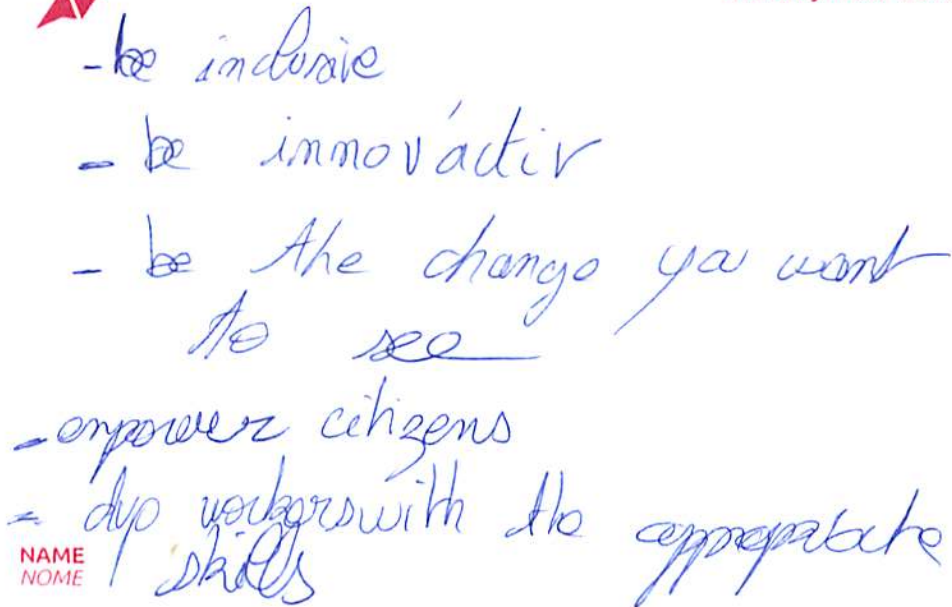 - be inclusive
- be innovactiv
- be the change you want
to see
- empower citizens
- workers with the appropriate
skills
NAME
NOME